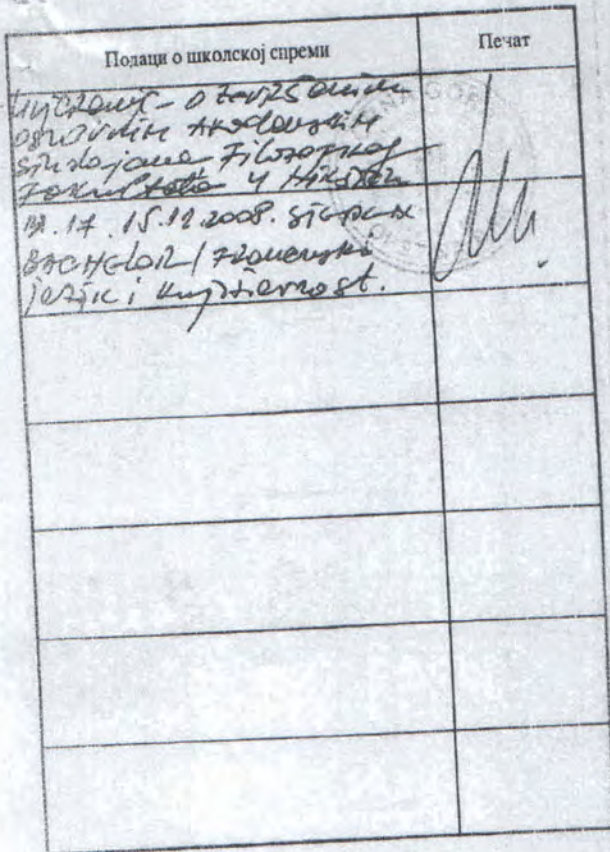 Подаци о школској спреми
Печат
- o završenim
osnovnim Akademskim
studijama Filozofskog
Fakulteta u Nikšiću
br. 17 .15.12.2008. stepen
BACHELOR /
jezik i književnost.
CRNA GORA